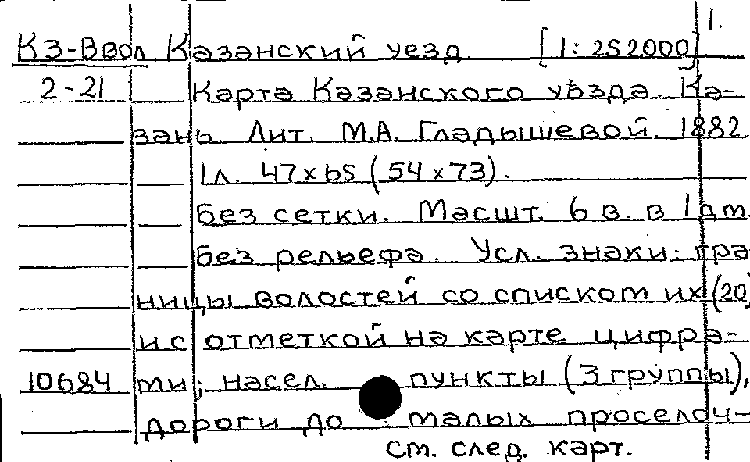 1.
КЗ-Ввол Казанский уезд. [1:252000]
2-21 Карта Казанского уѣзда. Ка-
зань Лит. М.А. Гладышевой. 1882
1л. 47х65 (54х73).
Без сетки. Масшт. 6 в. в 1 дм.
Без рельефа. Усл. знаки: гра
ницы волостей со списком их (20)
и с отметкой на карте цифра-
10684 ми; насел. пункты (3 группы),
дороги до малых проселоч-
см. след. карт.